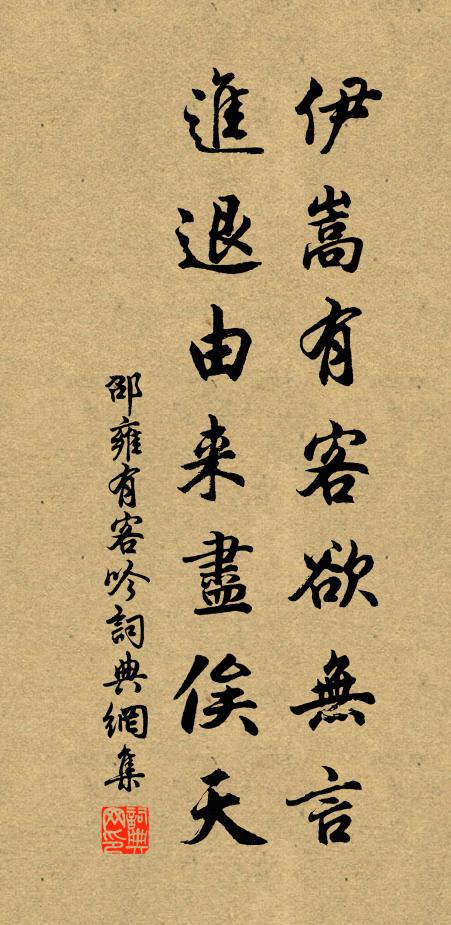 伊嵩有客欲無言
進退由来盡俟天
邵雍有客吟詞典網集
詞典網印